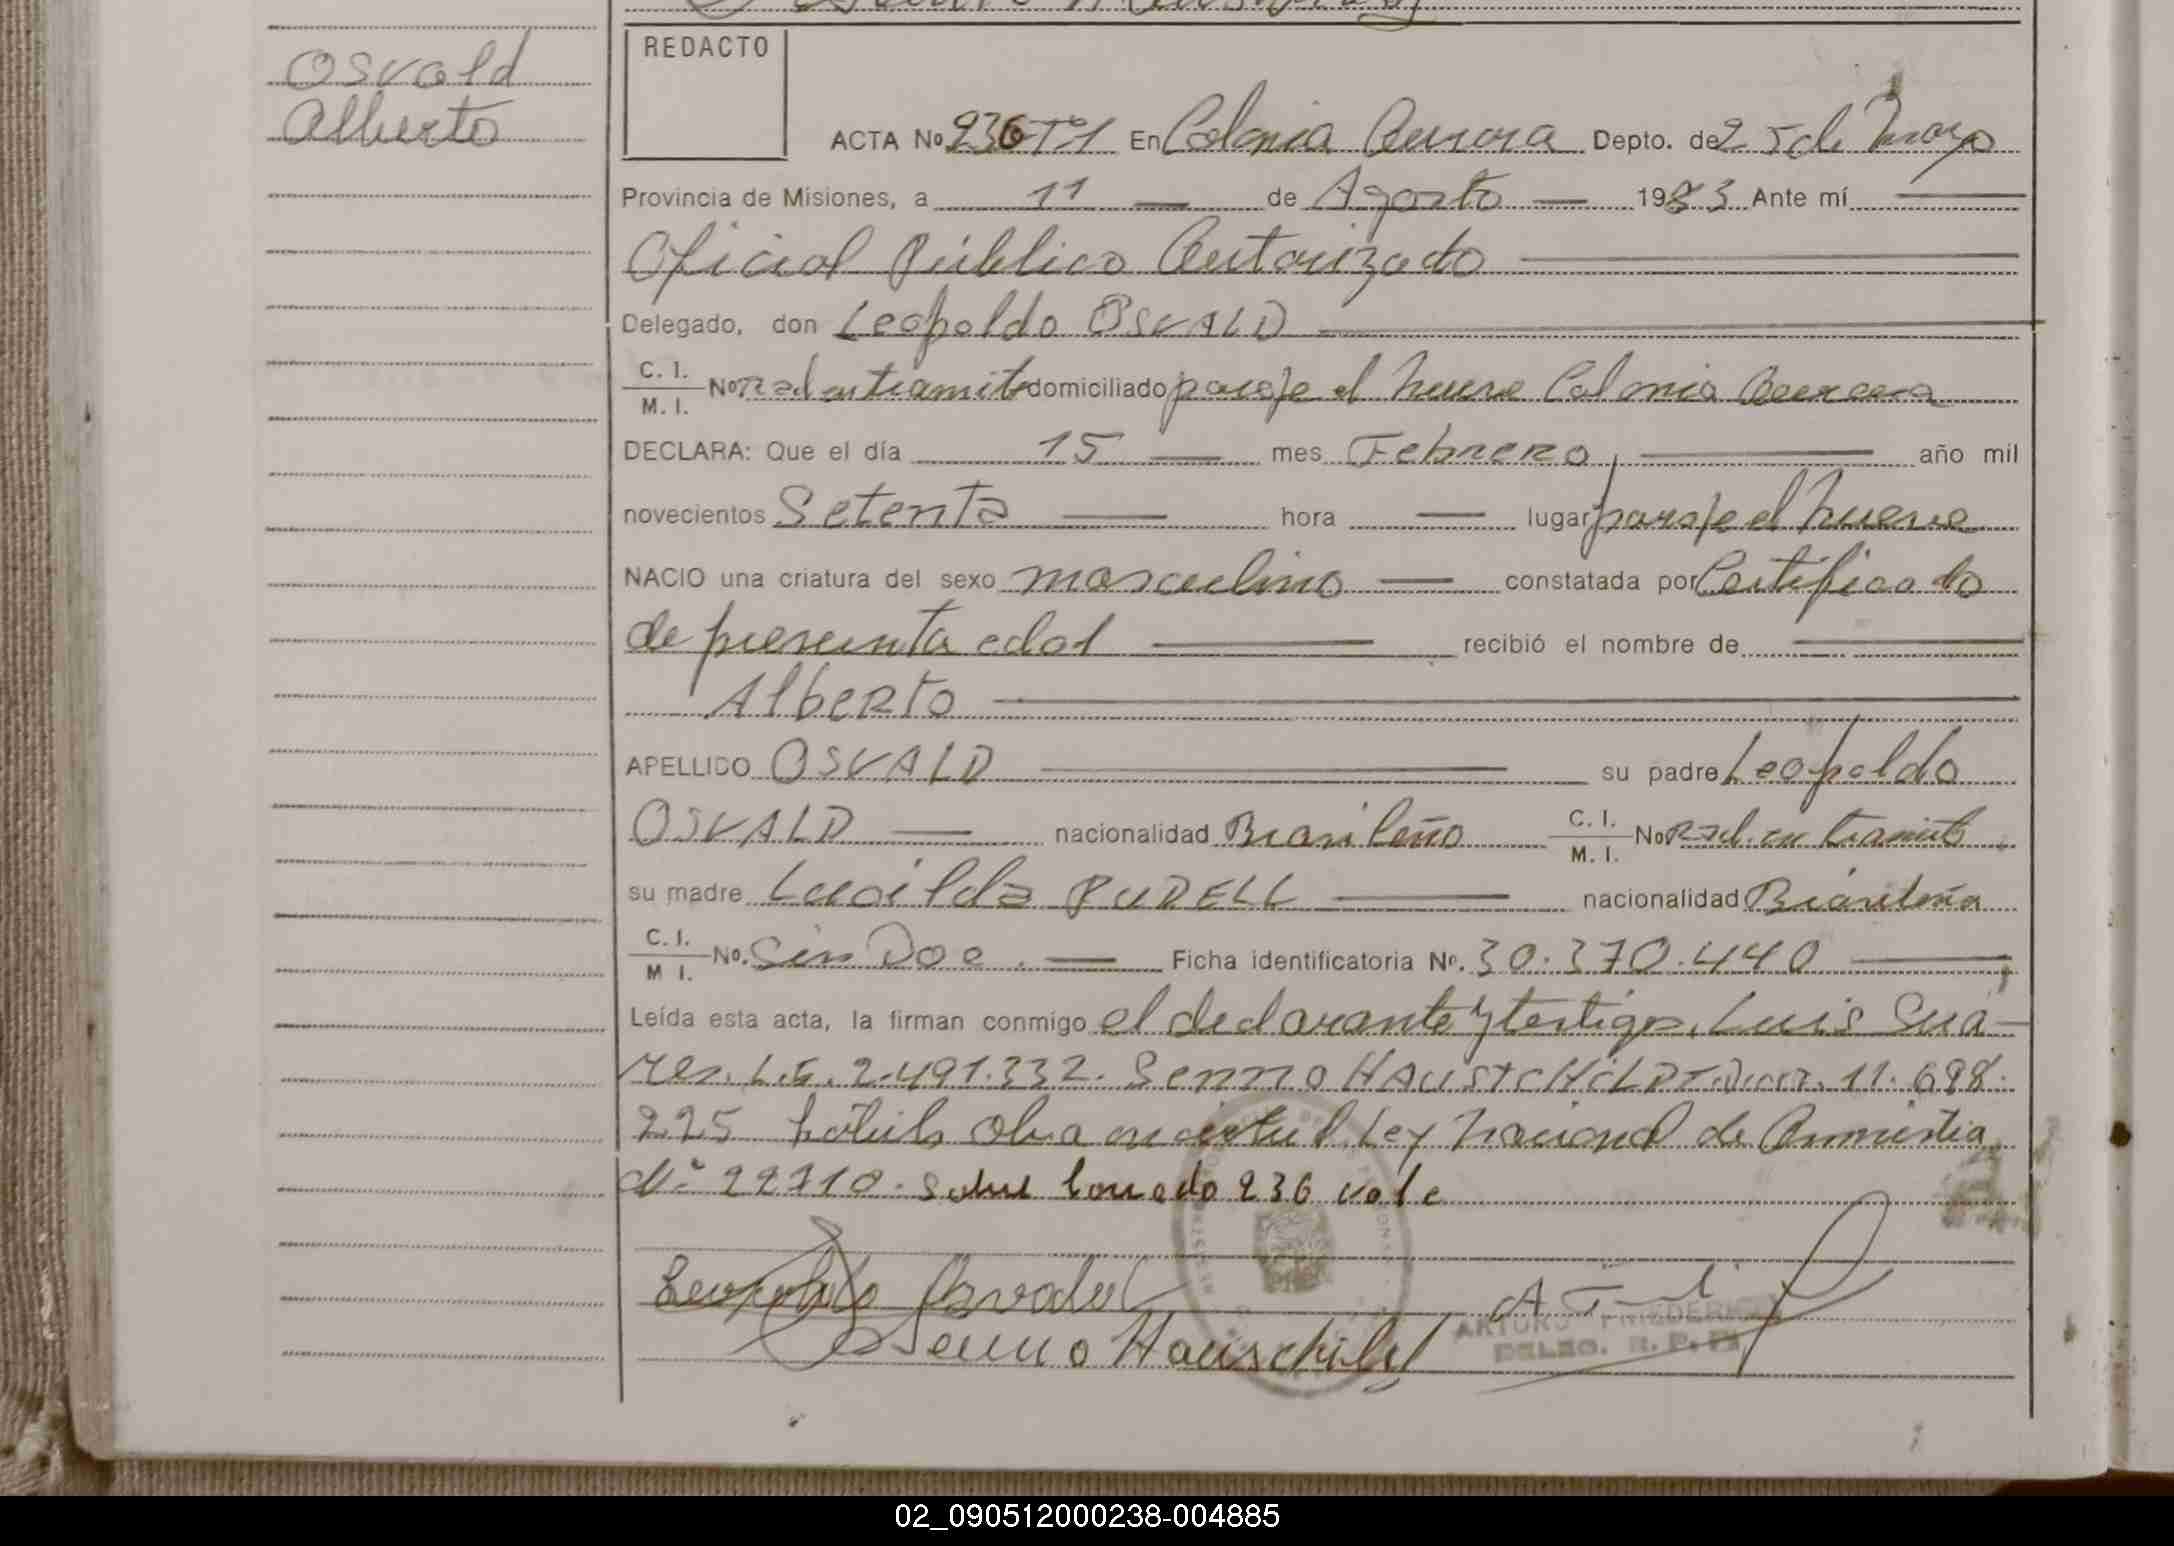 Osvald
Alberto
REDACTO
ACTA No 236 Tº1 En Colonia Aurora Depto. de 25 de Mayo
Provincia de Misiones, a 11 de Agosto 1983 Ante mí
Oficial Público Autorizado
Delegado, don Leopoldo OSVALD
C. I.
M. I. No Rad en tramite domiciliado paraje el nueve Colonia Aurora
DECLARA: Que el día 15 mes Febrero año mil
novecientos Setenta hora lugar paraje el nueve
NACIO una criatura del sexo masculino constatada por Certificado
de presunta edad recibió el nombre de
Alberto
APELLIDO OSVALD su padre Leopoldo
OSVALD nacionalidad Brasileño C. I.
M. I. No Rad. en tramite
su madre Lucilda RUDELL nacionalidad Brasileña
C. I.
M I. No. Sin Doc. Ficha identificatoria Nº. 30.370.440
Leída esta acta, la firman conmigo el declarante y testigos, Luis Suá-
res. L.E. 2.491.332. Senno HAUSTCHILDT 11.698.
225 Ley Nacional de Amnistia
Nº 22710. Sobre borrado 236 vale
Leopoldo Osvald
Senno Hauschild
ARTURO FRIEDERICH
DELEG. R. P. P.
02_090512000238-004885